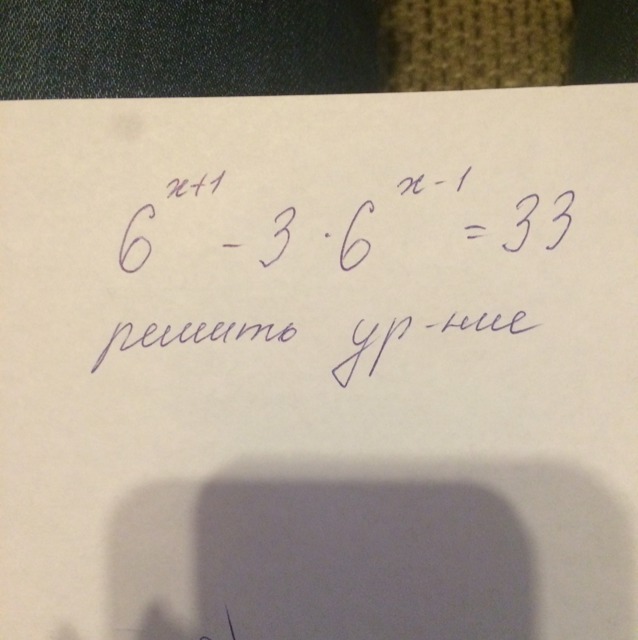 6^{x+1} - 3 · 6^{x-1} = 33
решить ур-ние